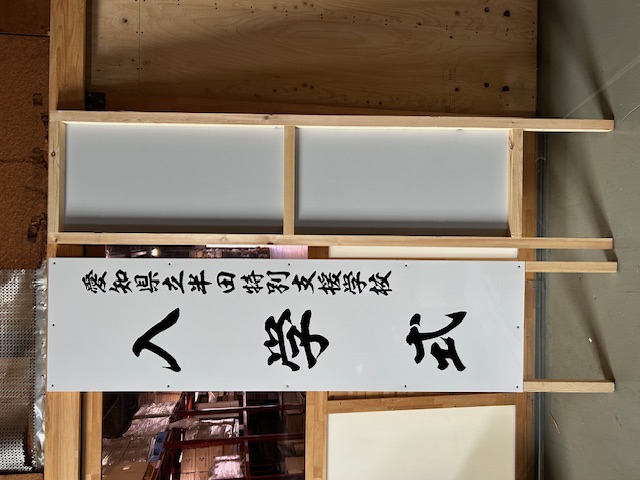 愛知県立半田特別支援学校
入学式